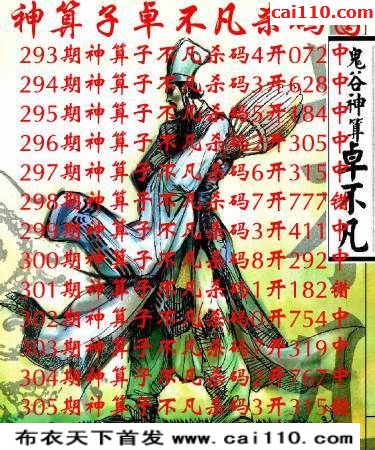 cai110.com
神算子卓不凡杀码
鬼谷神算
卓不凡
293期神算子不凡杀码4开072中
294期神算子不凡杀码3开628中
295期神算子不凡杀码5开184中
296期神算子不凡杀码开305中
297期神算子不凡杀码6开315中
298期神算子不凡杀码7开777错
299期神算子不凡杀码3开411中
300期神算子不凡杀码8开292中
301期神算子不凡杀码1开182错
302期神算子不凡杀码0开754中
303期神算子不凡杀码7开319中
304期神算子不凡杀码开767中
305期神算子不凡杀码3开315错
布衣天下首发 www.cai110.com